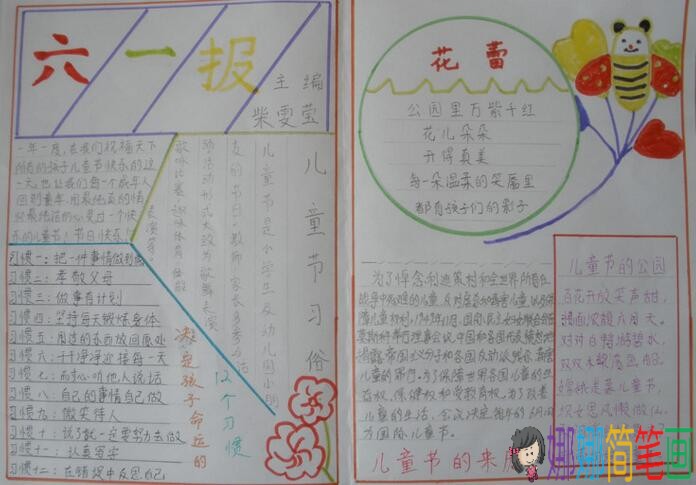 六一报
主编
柴雯莹
一年一度,在我们祝福天下
所有的孩子儿童节快乐的这
一天,也让我们每一个成年人
回到童年,用最纯真的情
怀最纯洁的心灵过一个快
乐的儿童节!节日快乐!
习惯一:把一件事情做到底
习惯二:孝敬父母
习惯三:做事有计划
习惯四:坚持每天锻炼身体
习惯五:用过的东西放回原处
习惯六:干干净净迎接每一天
习惯七:而心听他人说话
习惯八:自己的事情自己做
习惯九:微笑待人
习惯十:说了就一定要努力去做
习惯十一:认真写字
习惯十二:在错误中反思自己
决定孩子命运的
12个习惯
儿童节习俗
儿童节是小学生及幼儿园小朋
友的节日,教师、家长多参与活
动活动形式大致为歌舞表演
歌咏比赛、趣味体育、体操
表演等。
花蕾
公园里万紫千红
花儿朵朵
开得真美
每一朵温柔的笑靥里
都有孩子们的影子
为了悼念利迪策村和全世界所有在
战争中死难的儿童,反对虐杀和毒害儿童,以及保
障儿童权利,1949年11月,国际民主妇女联合会在
莫斯科举行理事会议,中国和各国代表愤怒地
揭露帝国主义分子和各国反动派残杀、毒害
儿童的罪行。为了保障世界各国儿童的生
存权、保健权和受教育权,为了改善
儿童的生活,会议决定每年的6月1日
为国际儿童节。
儿童节的来
儿童节的公园
百花开放笑声甜,
对对白鹅游碧水,
娜娜简笔画